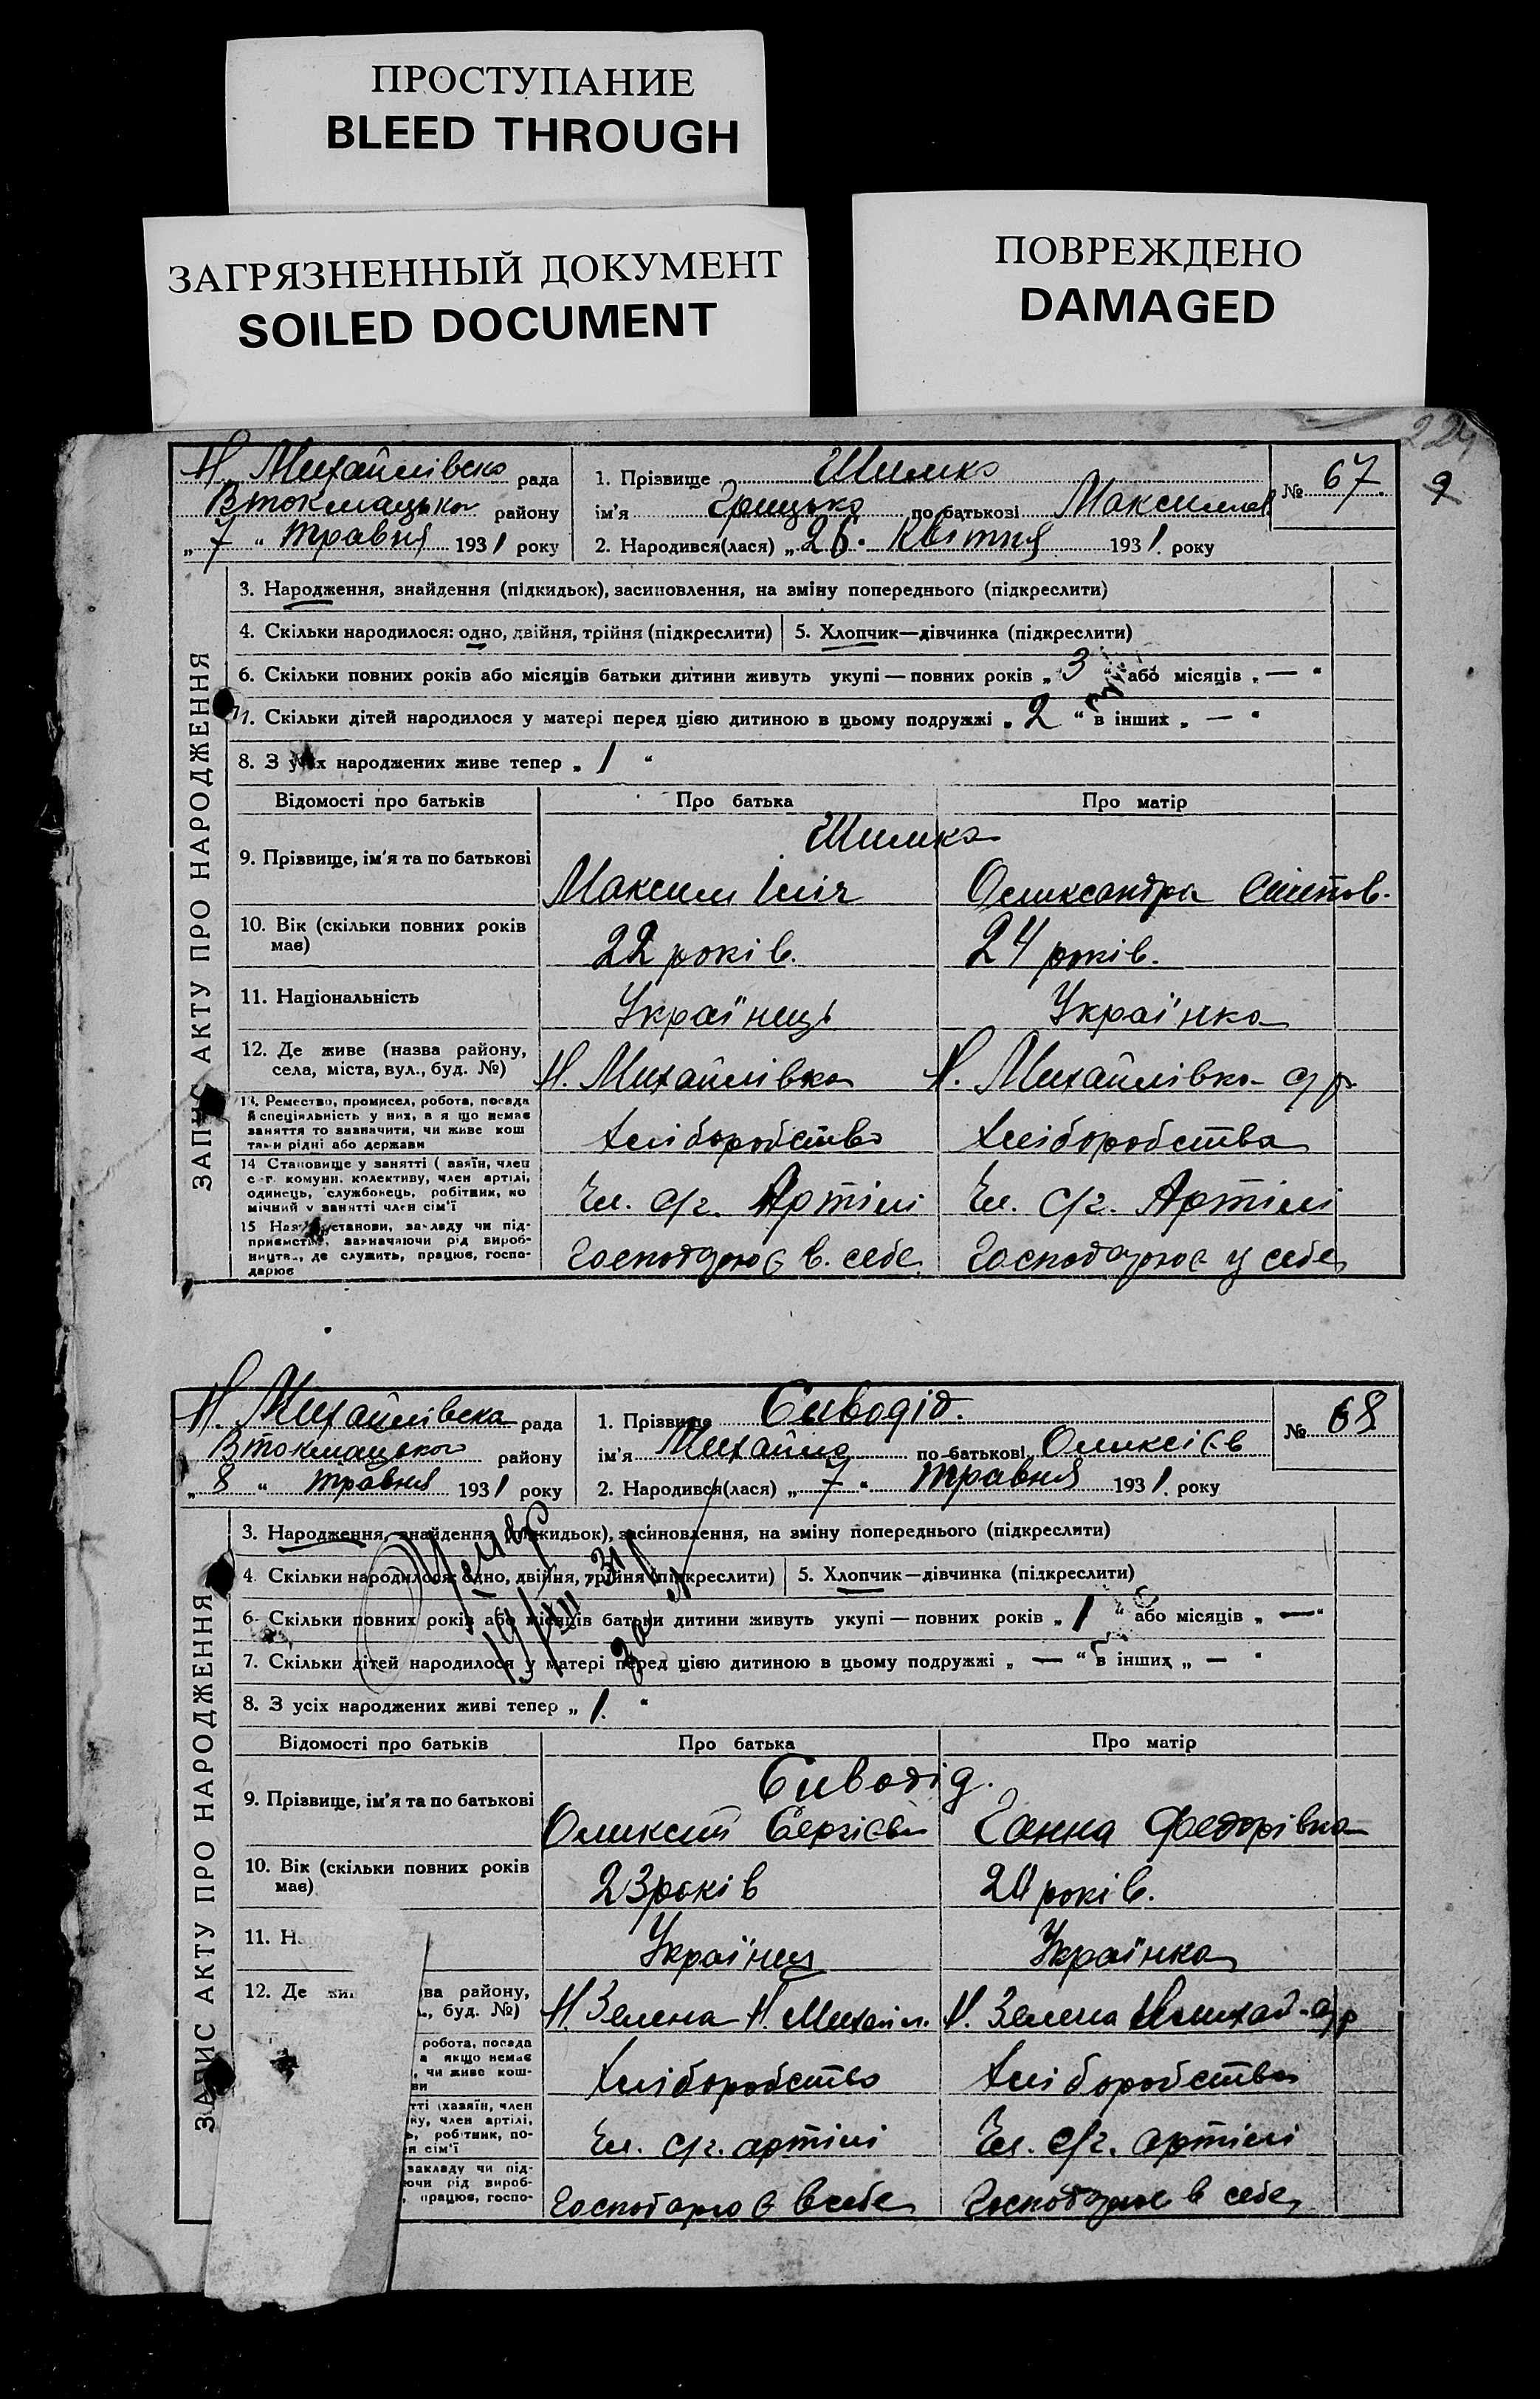 ПРОСТУПАНИЕ
BLEED THROUGH
ЗАГРЯЗНЕННЫЙ ДОКУМЕНТ
SOILED DOCUMENT
ПОВРЕЖДЕНО
DAMAGED
224
9
Н. Михайлівсько рада
Втокмацького району
„ 7 “ травня 1931 року
1. Прізвище Шимко
ім'я Грицько по батькові Максимов
2. Народився(лася) „ 26. Квітня 1931. року
№ 67.
ЗАПИС АКТУ ПРО НАРОДЖЕННЯ
3. Народження, знайдення (підкидьок), засиновлення, на зміну попереднього (підкреслити)
4. Скільки народилося: одно, двійня, трійня (підкреслити) 5. Хлопчик—дівчинка (підкреслити)
6. Скільки повних років або місяців батьки дитини живуть укупі — повних років „ 3 “ або місяців „ — “
7. Скільки дітей народилося у матері перед цією дитиною в цьому подружжі „ 2 “ в інших „ — “
8. З усіх народжених живе тепер „ 1 “
Відомості про батьків Про батька Про матір
Шимко
9. Прізвище, ім'я та по батькові
Максим Іліч Олександра
10. Вік (скільки повних років має) 22 років. 24 років.
11. Національність Українець Українка
12. Де живе (назва району, села, міста, вул., буд. №) Н. Михайлівка Н. Михайлівка
13. Ремество, промисел, робота, посада й спеціяльність у них, а якщо немає заняття то зазначити, чи живе кош тами рідні або держави Хліборобство Хліборобства
14 Становище у занятті (хазяїн, член с.-г. комуни, колективу, член артілі, одинець, службовець, робітник, по мічний у занятті член сім'ї Чл. с/г. Артілі Чл. с/г. Артілі
15 Назва установи, закладу чи під- приємства, зазначаючи рід вироб- ництва, де служить, працює, госпо- дарює Господарює в. себе Господарює у себе
Н. Михайлівска рада
Втокмацького району
„ 8 “ травня 1931 року
1. Прізвище Сиводід.
ім'я Михайло по батькові Оликсієв
2. Народився(лася) „ 7 “ травня 1931. року
№ 68
ЗАПИС АКТУ ПРО НАРОДЖЕННЯ
3. Народження, знайдення (підкидьок), засиновлення, на зміну попереднього (підкреслити)
4. Скільки народилося: одно, двійня, трійня (підкреслити) 5. Хлопчик—дівчинка (підкреслити)
6. Скільки повних років або місяців батьки дитини живуть укупі — повних років „ 1 “ або місяців „ — “
7. Скільки дітей народилося у матері перед цією дитиною в цьому подружжі „ — “ в інших „ — “
8. З усіх народжених живі тепер „ 1. “
Відомості про батьків Про батька Про матір
Сиводід.
9. Прізвище, ім'я та по батькові
Оликсій Сергієв Ганна Федорівна
10. Вік (скільки повних років має) 23 років 20 років.
11. На Українец Українка
12. Де жи ва району, ., буд. №) Н. Зелена Н. Михайл. Н. Зелена
робота, посада
а якщо немає
, чи живе кош-
Хліборобство Хліборобства
тті (хазяїн, член
ву, член артілі,
робітник, по-
сім'ї
Чл. с/г. артілі Чл. с/г. артілі
закладу чи під-
ючи рід вироб-
, працює, госпо-
Господарює в себе Господарює в себе